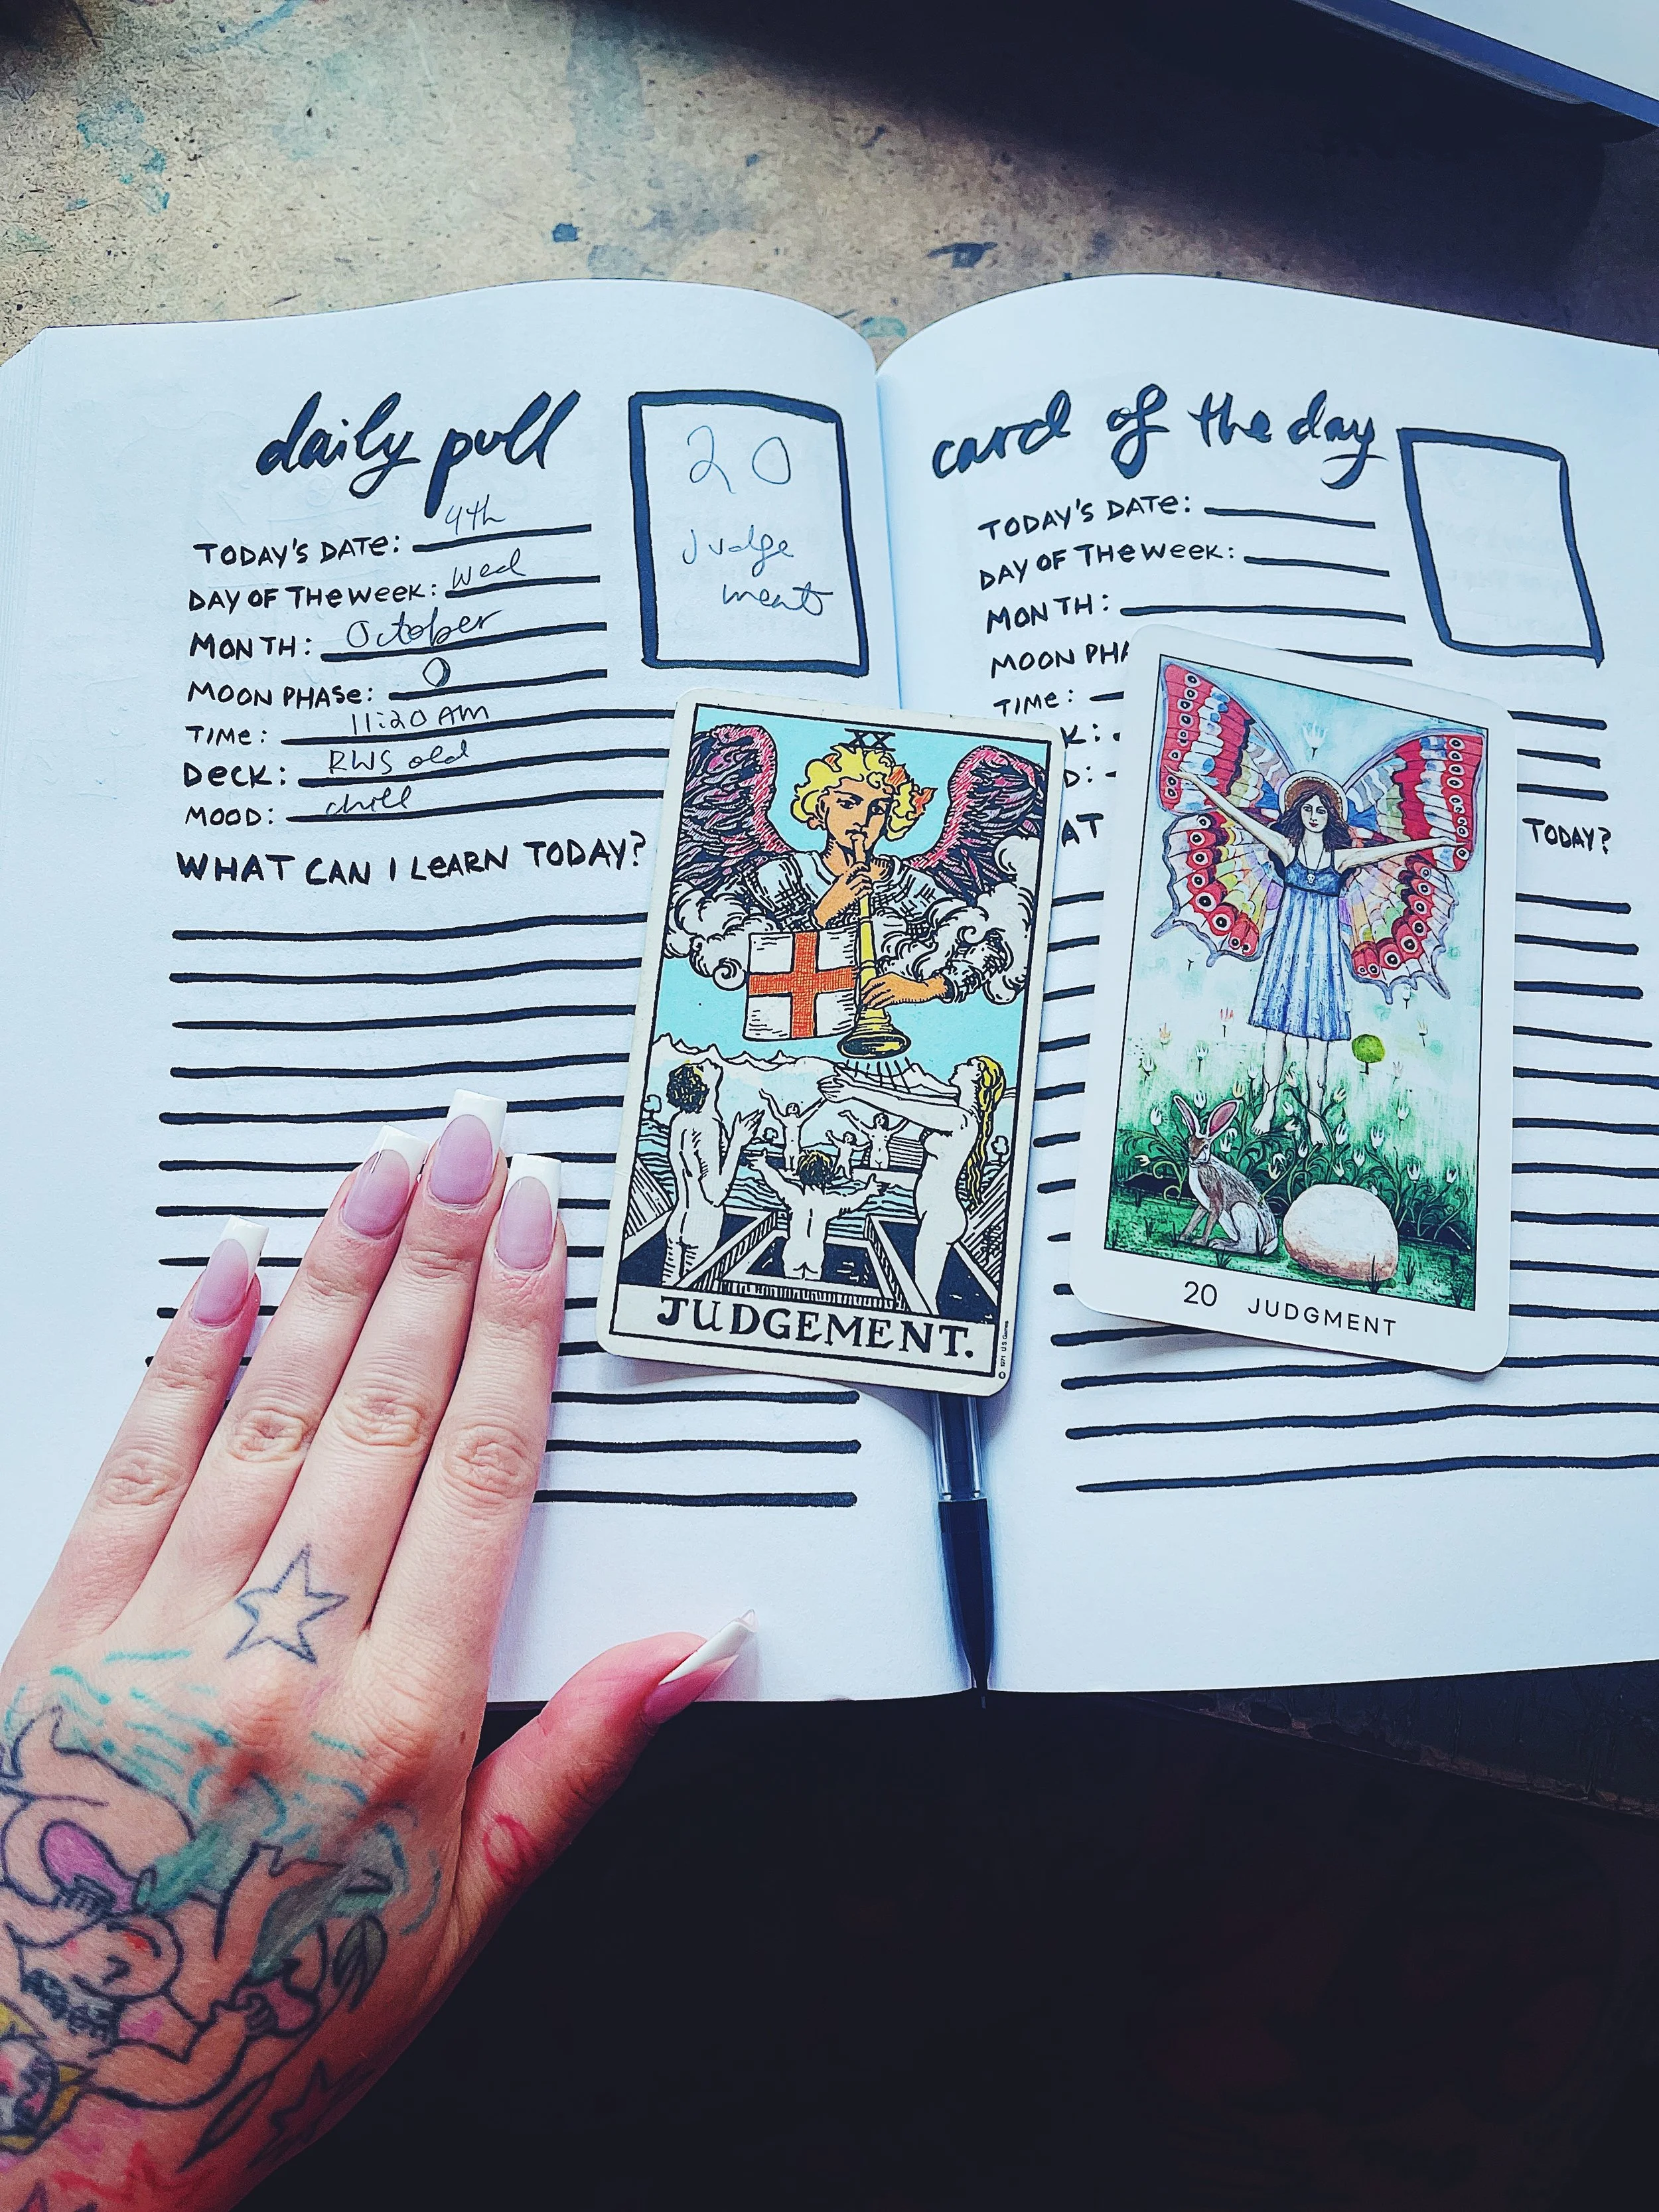 daily pull
TODAY'S DATE: 4th
DAY OF THE WEEK: Wed
MONTH: October
MOON PHASE:
TIME: 11:20 AM
DECK: RWS old
MOOD: chill
WHAT CAN I LEARN TODAY?
20
Judge
ment
card of the day
TODAY'S DATE:
DAY OF THE WEEK:
MONTH:
MOON PHA
TIME:
K:
D:
AT TODAY?
XX
JUDGEMENT.
© 1971 U.S. Games
20 JUDGMENT